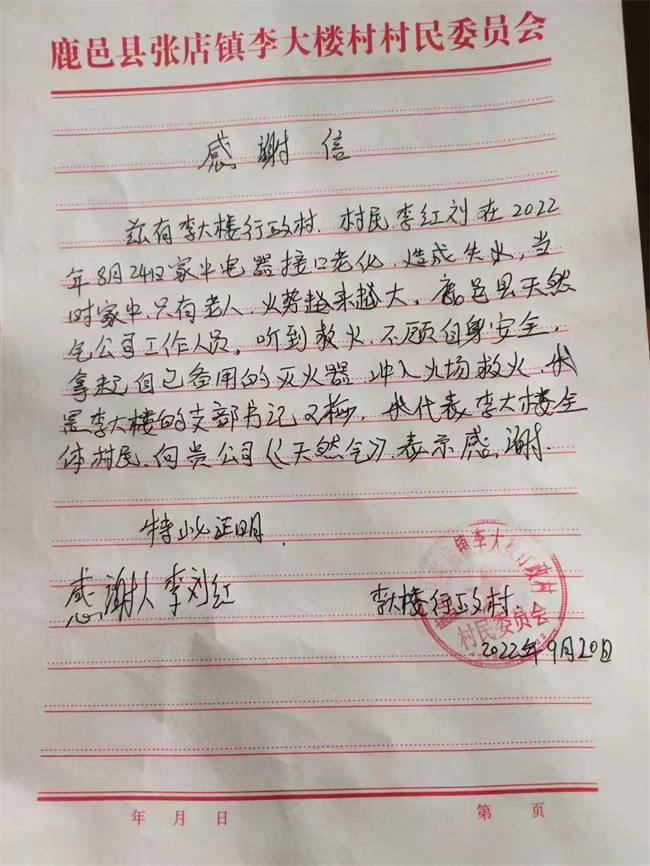 鹿邑县张店镇李大楼村村民委员会
感谢信
兹有李大楼行政村、村民李红刘在2022
年8月24日家中电器接口老化、造成失火,当
时家中只有老人、火势越来越大,鹿邑县天然
气公司工作人员,听到救火、不顾自身安全,
拿起自己备用的灭火器冲入火场救火、我
是李大楼的支部书记,我代表李大楼全
体村民、向贵公司《天然气》表示感谢.
特此证明.
感谢人李刘红
李大楼行政村
村民委员会
2022年9月20日
年 月 日
第 页